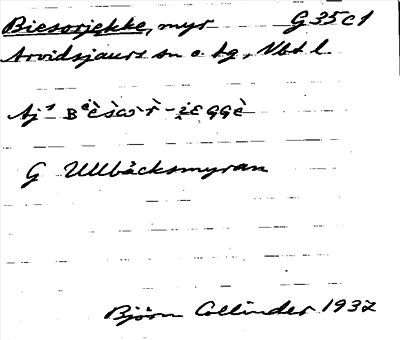 Biesorjekke, myr G 35 c 1
Arvidsjaurs sn o. tg, Vbt l.
G Ullbäcksmyran
Björn Collinder 1932